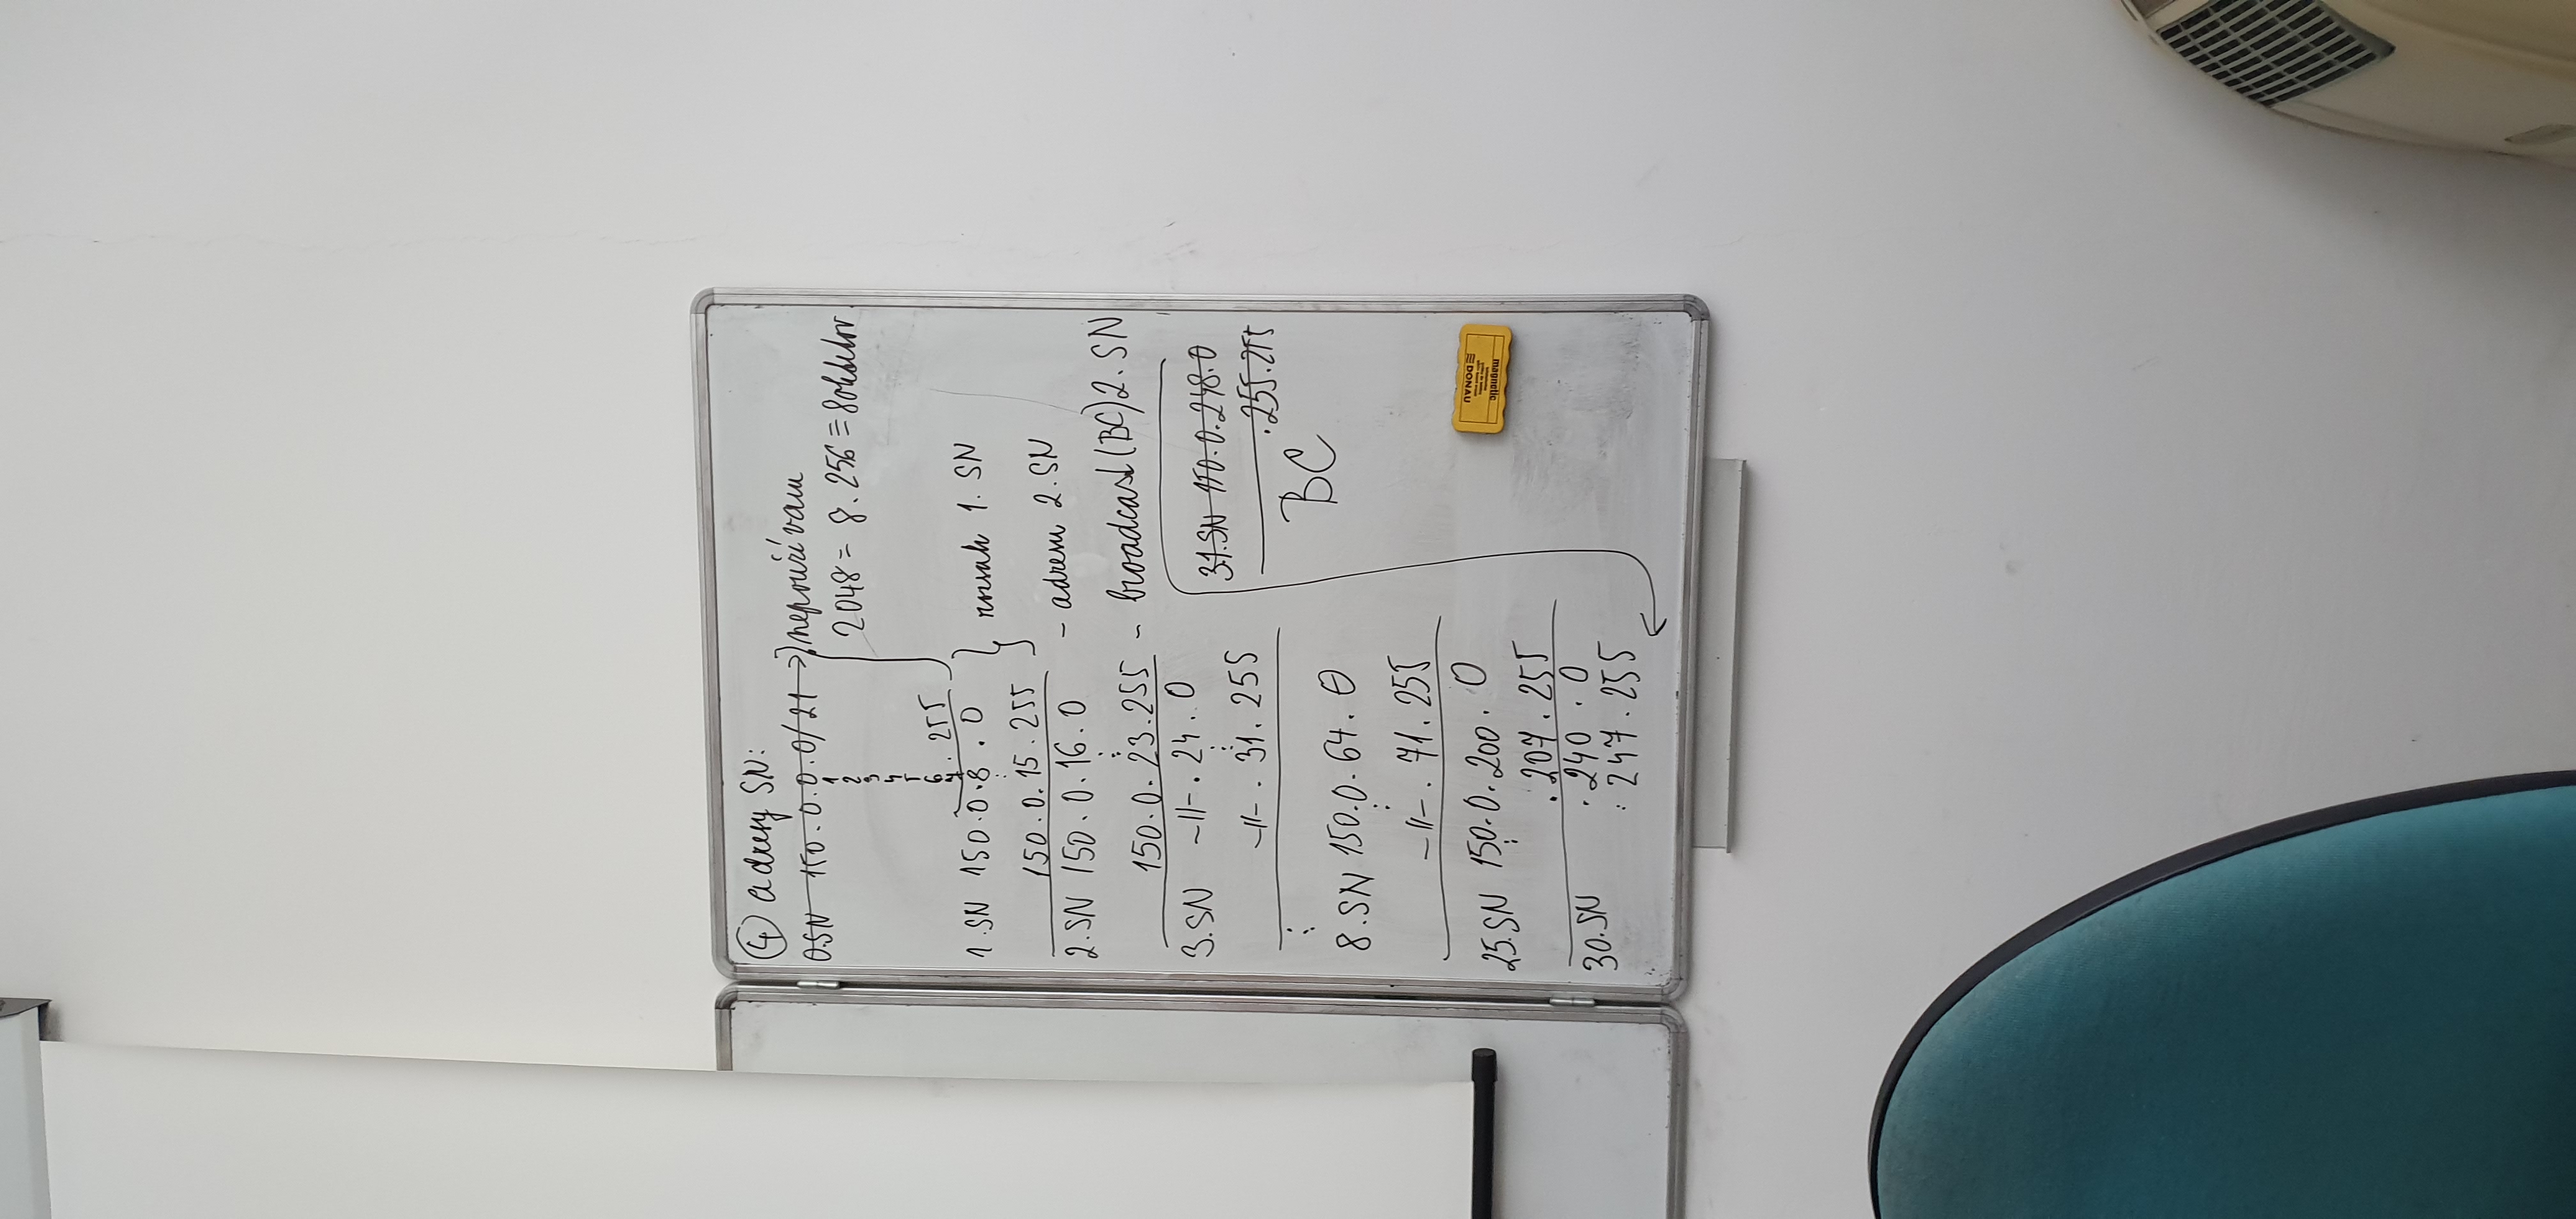 4 adresy SN:
0.SN 150.0.0.0/21 → nepoužívam
1
2
3
4
5
6
7.255
2048 = 8.256 ≡ 8 oktetov
1.SN 150.0.8.0
⋮
150.0.15.255
rozsah 1.SN
2.SN 150.0.16.0 - adresa 2.SN
⋮
150.0.23.255 - broadcast (BC) 2.SN
3.SN -//-.24.0
⋮
-//-.31.255
⋮
8.SN 150.0.64.0
⋮
-//-.71.255
25.SN 150.0.200.0
⋮
.207.255
30.SN .240.0
: 247.255
31.SN 150.0.248.0
.255.255
BC
magnetic
DONAU